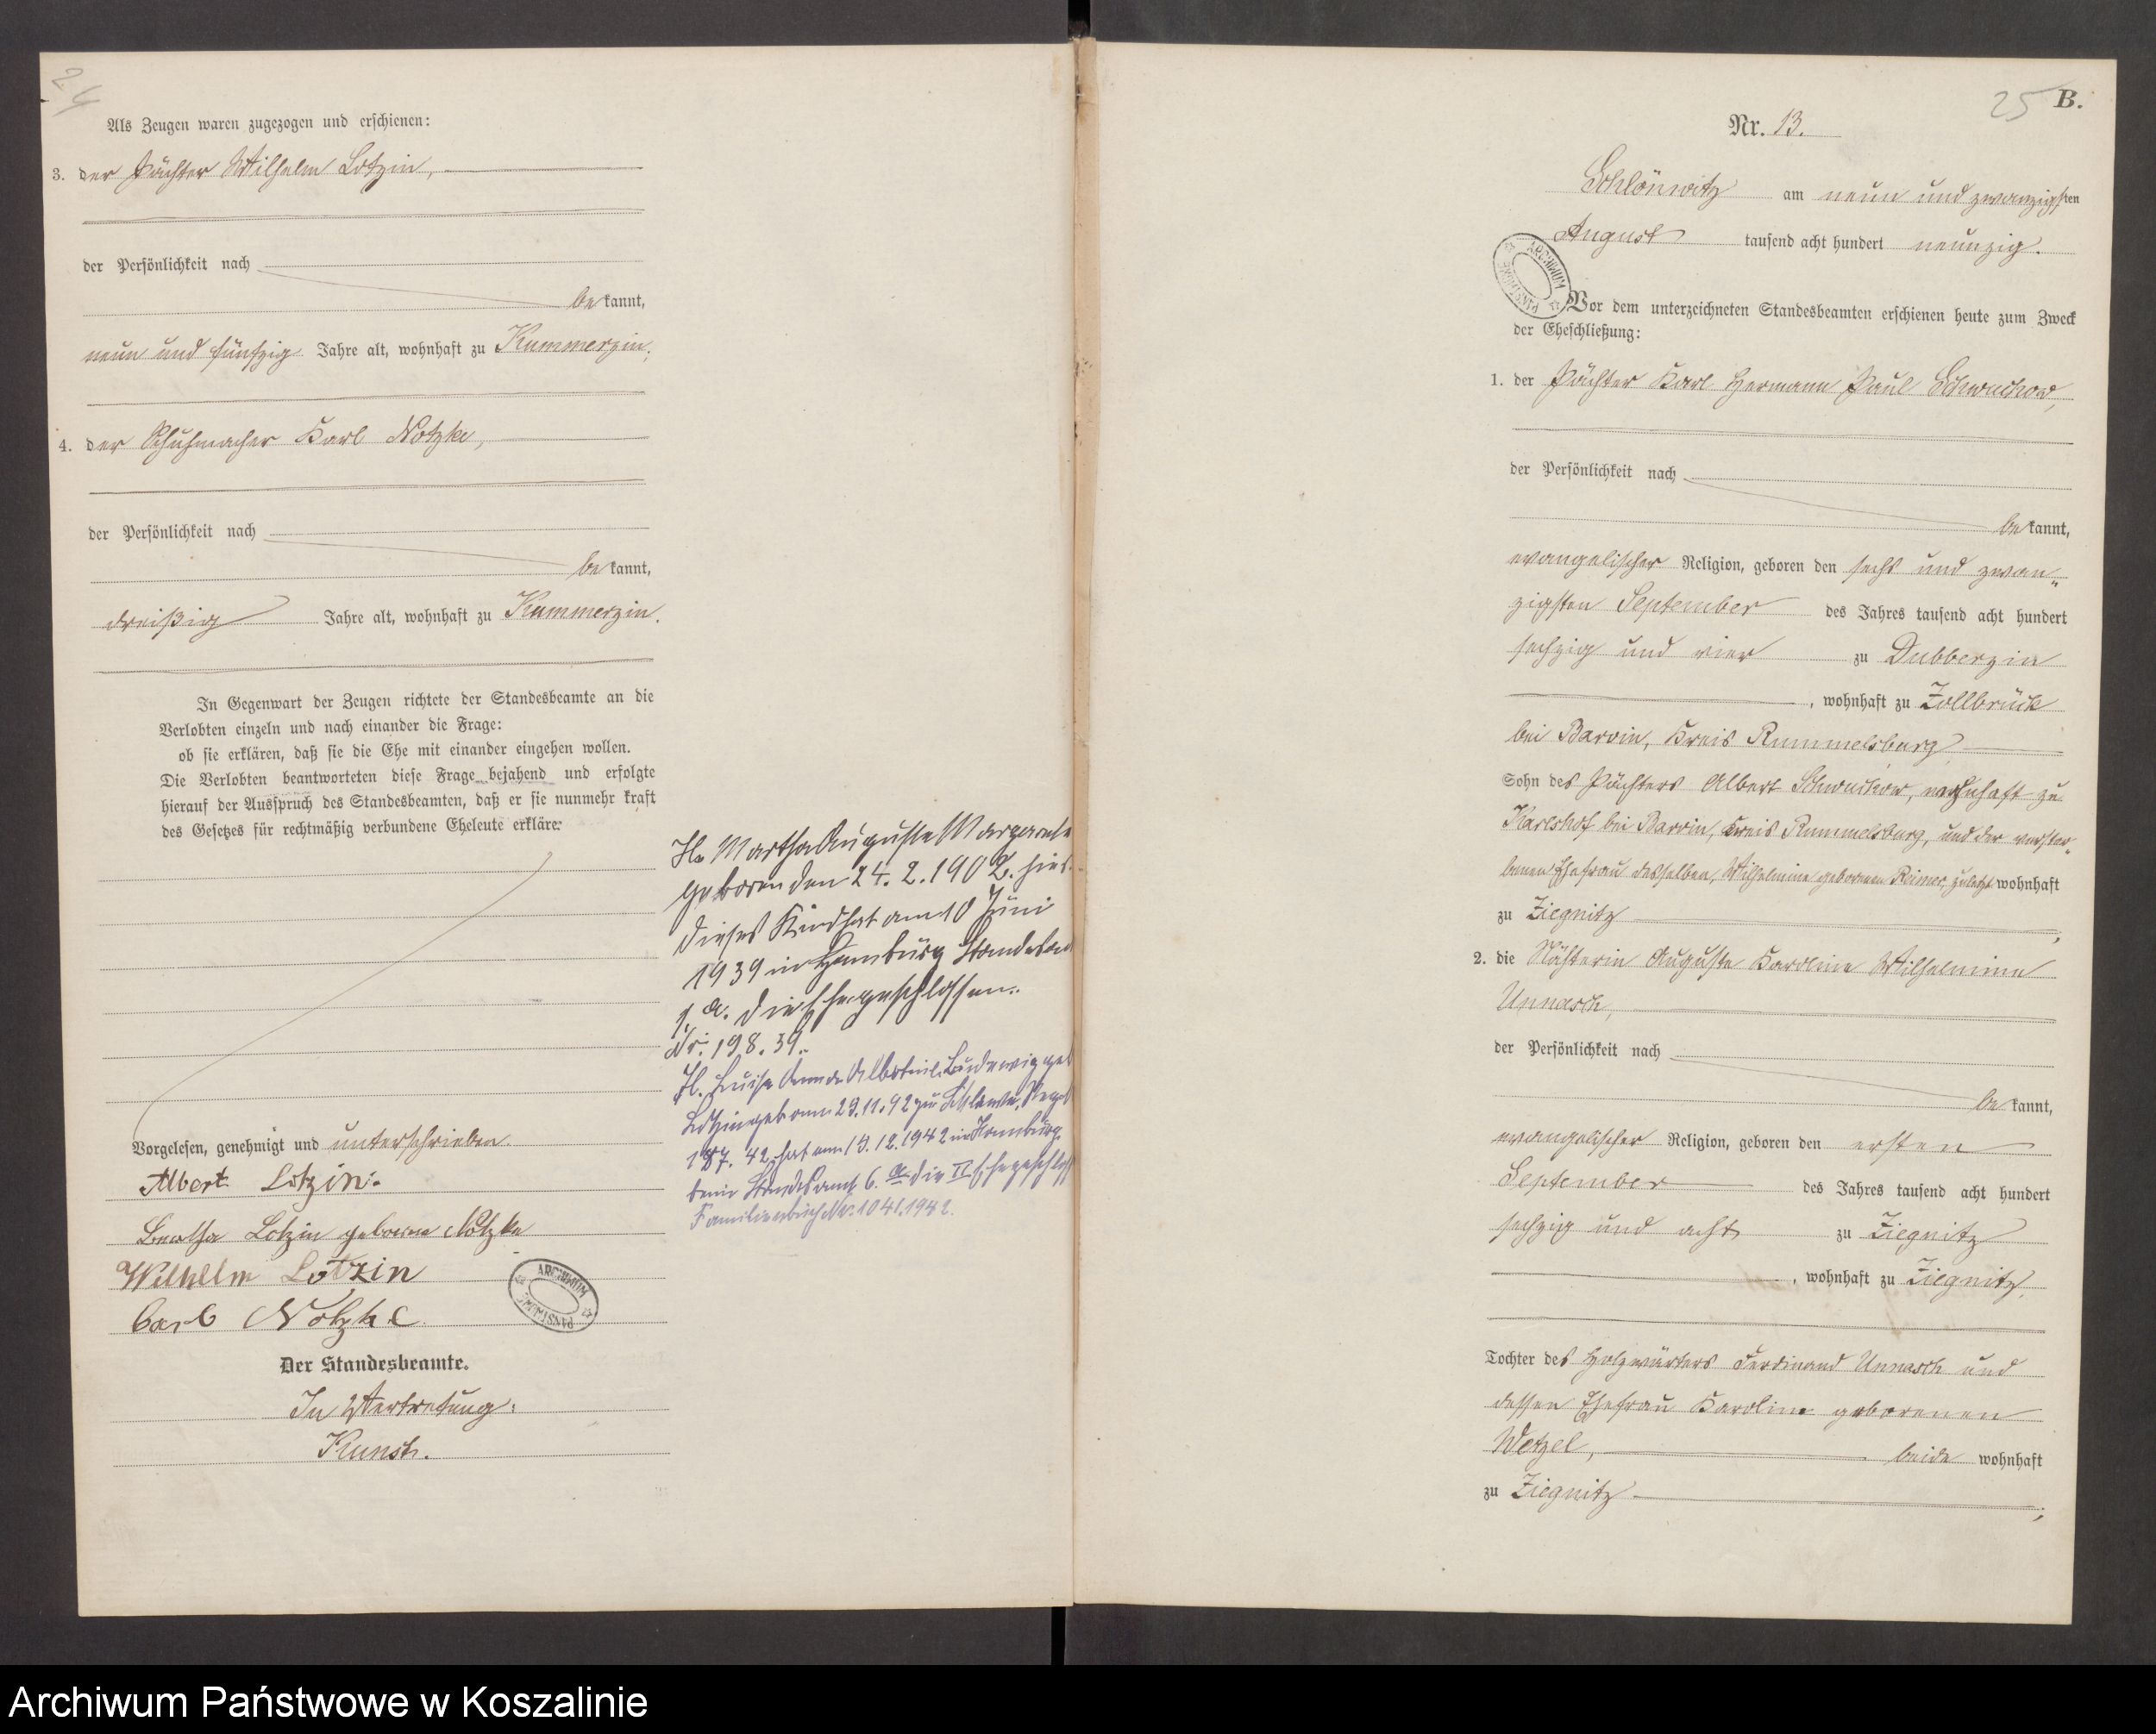 24
Als Zeugen waren zugezogen und erschienen:
3. der Pächter Wilhelm Lotzin,
der Persönlichkeit nach
bekannt,
neun und fünfzig Jahre alt, wohnhaft zu Kummerzin,
4. der Schuhmacher Karl Notzke,
der Persönlichkeit nach
bekannt,
dreißig Jahre alt, wohnhaft zu Kummerzin.
In Gegenwart der Zeugen richtete der Standesbeamte an die
Verlobten einzeln und nach einander die Frage:
ob sie erklären, daß sie die Ehe mit einander eingehen wollen.
Die Verlobten beantworteten diese Frage bejahend und erfolgte
hierauf der Ausspruch des Standesbeamten, daß er sie nunmehr kraft
des Gesetzes für rechtmäßig verbundene Eheleute erkläre.
Vorgelesen, genehmigt und unterschrieben
Albert Lotzin.
Bertha Lotzin geborene Notzke
Wilhelm Lotzin
Carl Notzke
Der Standesbeamte.
In Vertretung:
Kunst.
ARCHIWUM PAŃSTWOWE
Martha Auguste Margarete
geboren den 24. 2. 1902. hier.
dieses Kind hat am 10 Juni
1939 in Hamburg Standesamt
1. a. die Ehe geschlossen.
Nr. 198. 39.
Luise Albertine Ludewig geb
Lotzin geboren 29.11.92 zu Schlawe,
187. 42. hat am 19.12.1942 in Hamburg
beim Standesamt 6. a die II Ehe geschloss
Familienbuch Nr. 1041.1942.
25 B.
Nr. 13.
Schlönwitz am neun und zwanzigsten
August tausend acht hundert neunzig.
ARCHIWUM PAŃSTWOWE
Vor dem unterzeichneten Standesbeamten erschienen heute zum Zweck
der Eheschließung:
1. der Pächter Karl Hermann Paul Schwuchow,
der Persönlichkeit nach
bekannt,
evangelischer Religion, geboren den sechs und zwan„
zigsten September des Jahres tausend acht hundert
sechzig und vier zu Dubberzin
, wohnhaft zu Zollbrück
bei Barvin, Kreis Rummelsburg
Sohn des Pächters Albert Schwuchow, wohnhaft zu
Karlshof bei Barvin, Kreis Rummelsburg, und der verstor„
benen Ehefrau desselben, Wilhelmine geborenen Reimer, zuletzt wohnhaft
zu Ziegnitz;
2. die Nähterin Auguste Karoline Wilhelmine
Unnasch,
der Persönlichkeit nach
bekannt,
evangelischer Religion, geboren den ersten
September des Jahres tausend acht hundert
sechzig und acht zu Ziegnitz
, wohnhaft zu Ziegnitz,
Tochter des Holzwärters Ferdinand Unnasch und
dessen Ehefrau Karoline geborenen
Wetzel, beide wohnhaft
zu Ziegnitz;
Archiwum Państwowe w Koszalinie